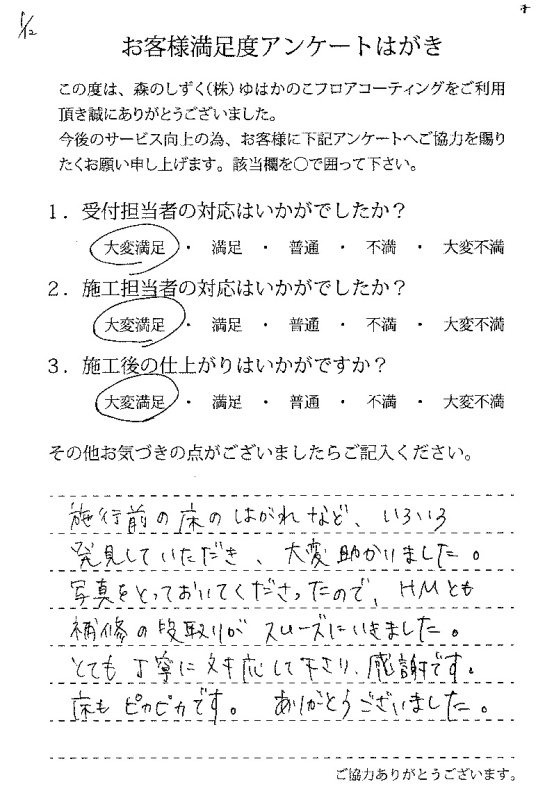 1/12
お客様満足度アンケートはがき
この度は、森のしずく(株)ゆはかのこフロアコーティングをご利用
頂き誠にありがとうございました。
今後のサービス向上の為、お客様に下記アンケートへご協力を賜り
たくお願い申し上げます。該当欄を〇で囲って下さい。
1．受付担当者の対応はいかがでしたか？
大変満足 ・ 満足 ・ 普通 ・ 不満 ・ 大変不満
2．施工担当者の対応はいかがでしたか？
大変満足 ・ 満足 ・ 普通 ・ 不満 ・ 大変不満
3．施工後の仕上がりはいかがですか？
大変満足 ・ 満足 ・ 普通 ・ 不満 ・ 大変不満
その他お気づきの点がございましたらご記入ください。
施行前の床のはがれなど、いろいろ
発見していただき、大変助かりました。
写真をとっておいてくださったので、HMとも
補修の段取りがスムーズにいきました。
とても丁寧に対応して下さり、感謝です。
床もピカピカです。 ありがとうございました。
ご協力ありがとうございます。